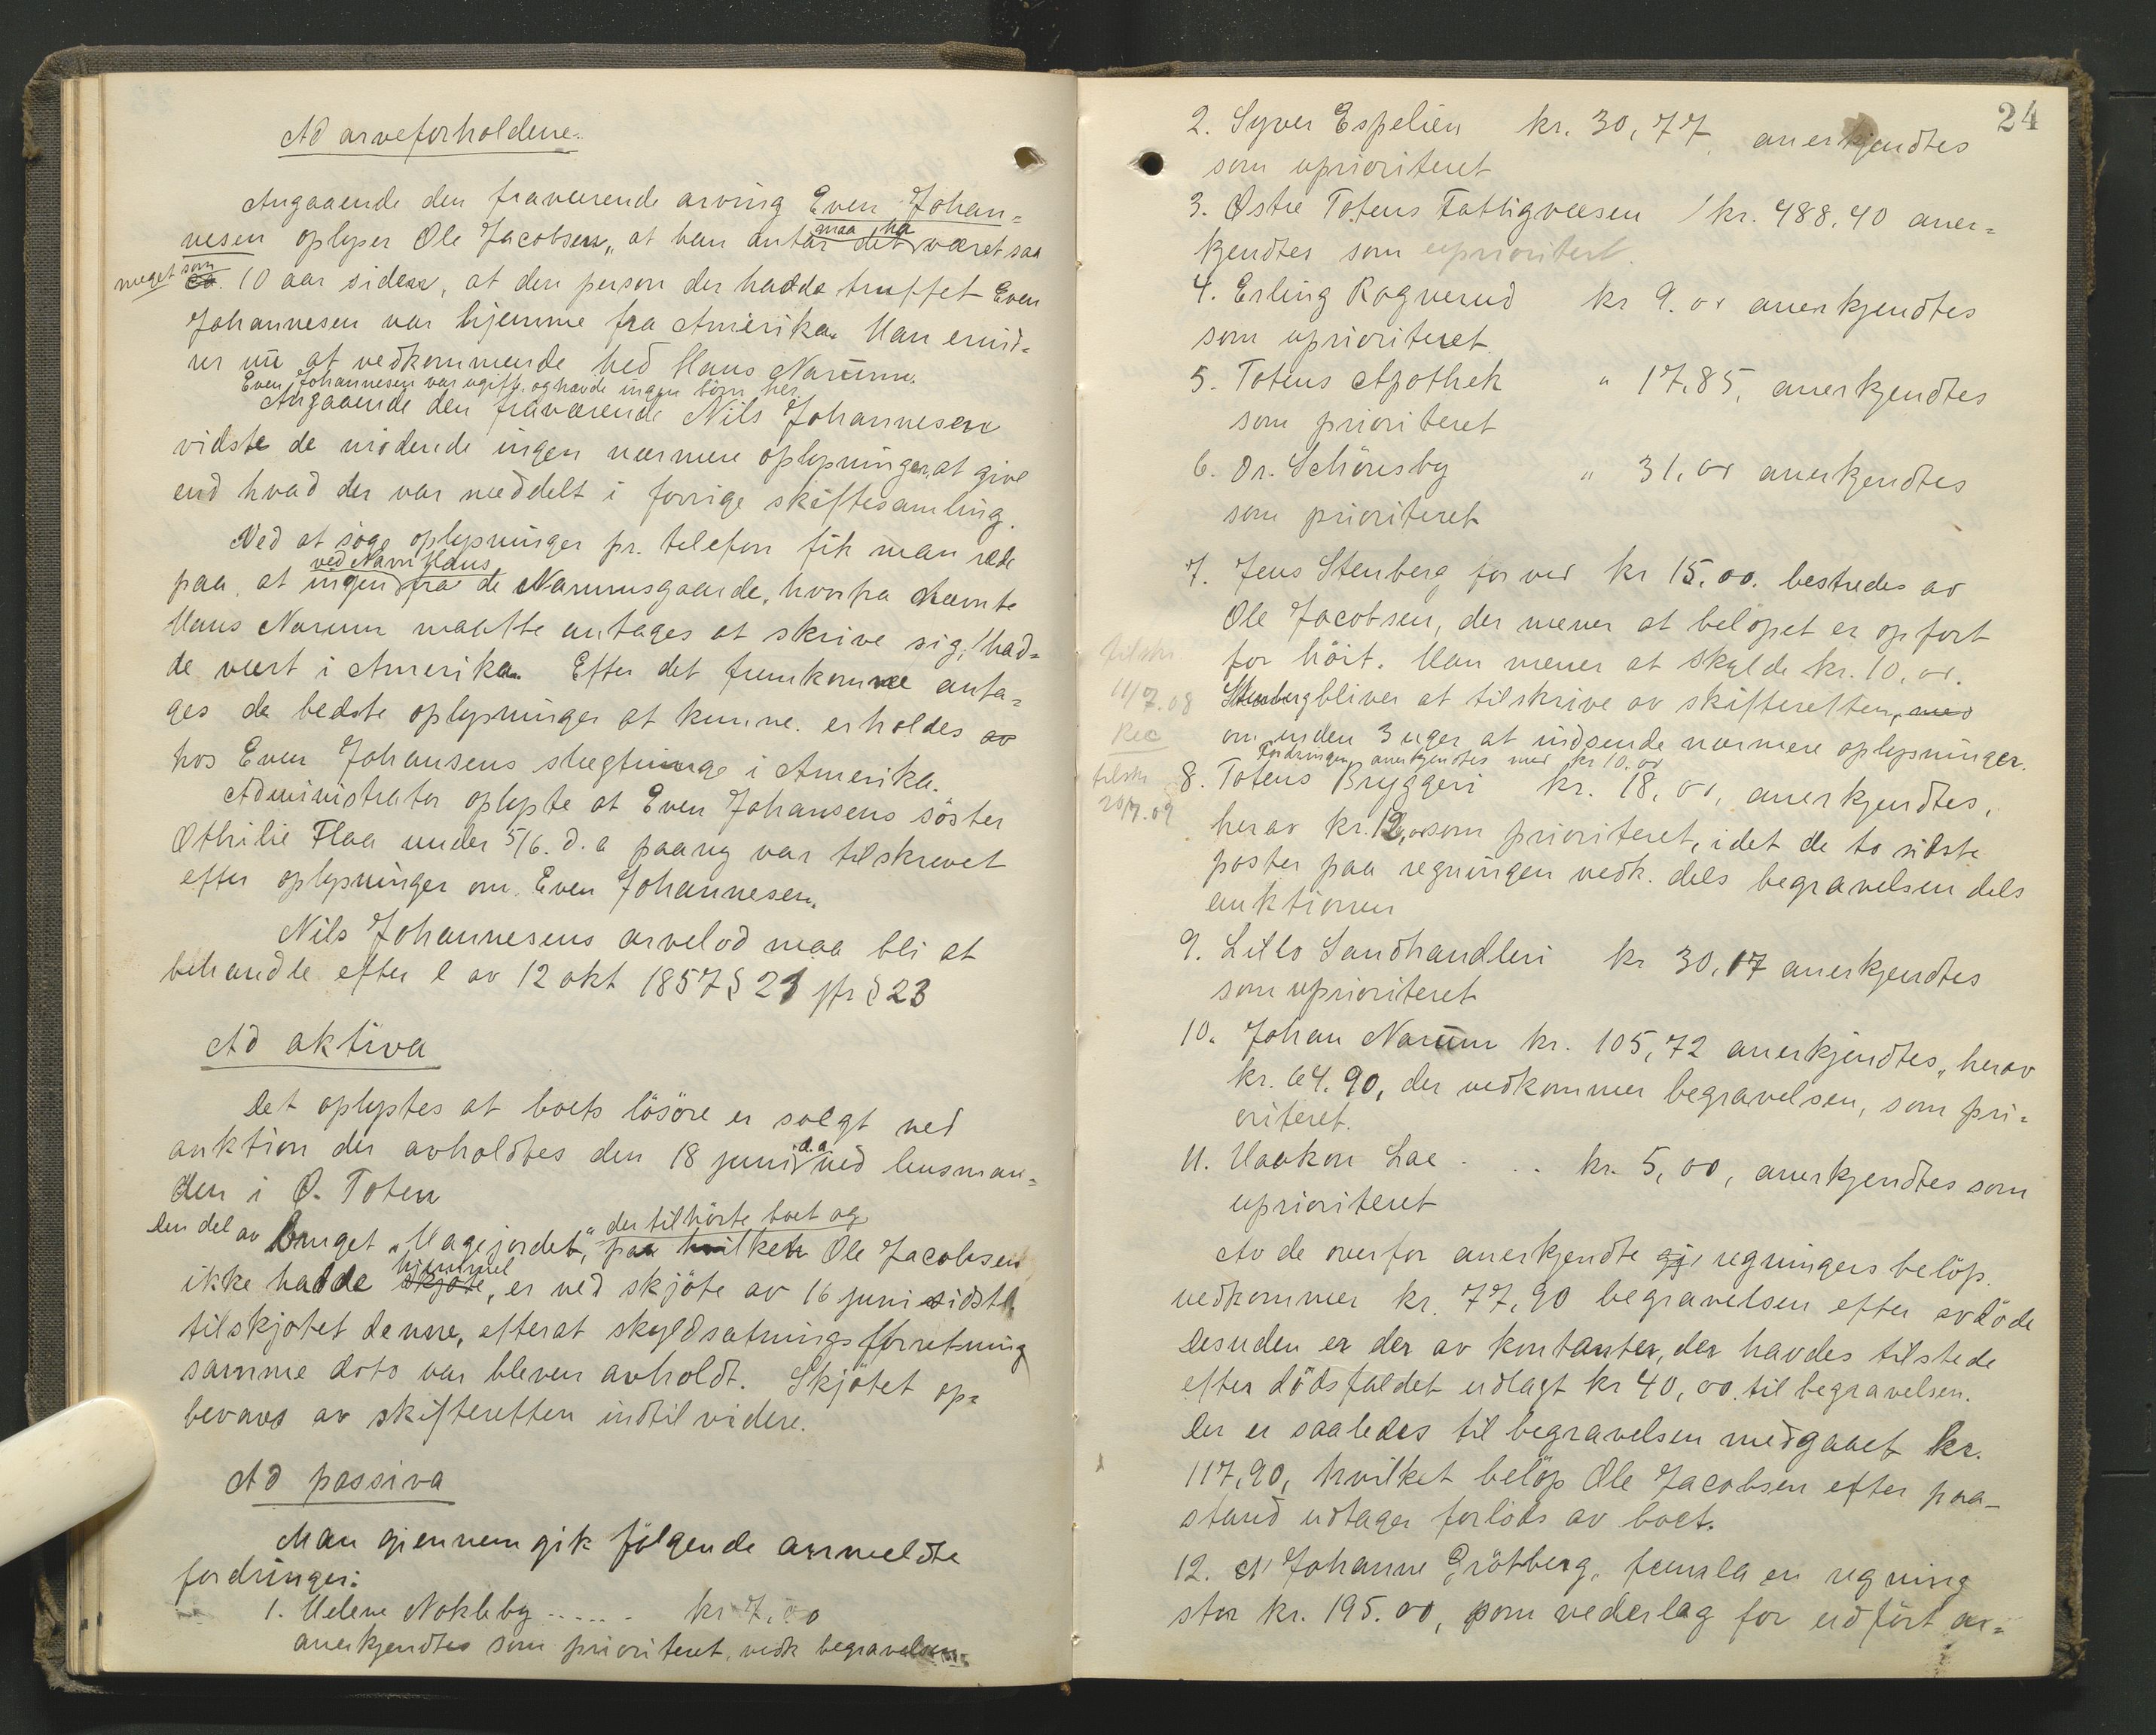 Ad arveforholdene.
Angaaende den fraværende arving Even Johan=
nesen oplyser Ole Jacobsen, at han antar det maa ha været saa
meget som ca. 10 aar siden, at den person der hadde truffet Even
Johannesen var hjemme fra Amerika. Man erind-
rer nu at vedkommende hed Hans Narum.
Even Johannesen var ugift og havde ingen börn her.
Angaaende den fraværende Nils Johannesen
vidste de mödende ingen nærmere oplysninger at give
end hvad der var meddelt i forrige skiftesamling.
Ved at söge oplysninger pr. telefon fik man rede
paa, at ingen ved Navn Hans fra de Narumsgaarde, hvorfra nævnte
Hans Narum maatte antages at skrive sig, had=
de vært i Amerika. Efter det fremkomne anta=
ges de bedste oplysninger at kunne erholdes av
hos Even Johansens slegtninge i Amerika.
Administrator oplyste at Even Johansens söster
Othilie Flaa under 5/6. d.a paany var tilskrevet
efter oplysninger om Even Johannesen.
Nils Johannesens arvelod maa bli at
behandle efter l av 12 okt 1857 § 21 jfr § 23
Ad aktiva
Det oplystes at boets lösöre er solgt ved
auktion der avholdtes den 18 juni d.a ved lensman=
den i Ö. Toten
Den del av bruget "Hagejordet", der tilhörte boet og paa hvilken Ole Jacobsen
ikke hadde skjöte hjemmel, er ved skjöte av 16 juni sidstl.
tilskjötet denne, efterat skyldsætningsforretning
samme dato var bleven avholdt. Skjötet op=
bevares av skifteretten indtil videre.
Ad passiva
Man gjennemgik fölgende anmeldte
fordringer:
1. Helene Nökleby ..... kr 7.00
anerkjendtes som prioriteret, vedk begravelsen.
24
2. Syver Espelien kr. 30,77 anerkjendtes
som uprioriteret
3. Østre Totens Fattigvæsen kr. 488,40 aner=
kjendtes som uprioritert.
4. Erling Rognerud kr 9.00 anerkjendtes
som uprioriteret
5. Totens Apothek " 17,85, anerkjendtes
som prioriteret
6. Dr. Schönsby " 31,00 anerkjendtes
som prioriteret
7. Jens Stenberg for ved kr 15,00. bestredes av
Ole Jacobsen, der mener at belöpet er opfört
for höit. Han mener at skylde kr. 10,00.
tilskr
11/7.08
Rec
Stenberg bliver at tilskrive av skifteretten, med
om inden 3 uger at indsende nærmere oplysninger.
Fordringen anerkjendtes med kr 10.00
tilskr
20/7.09
8. Totens Bryggeri kr. 18,00, anerkjendtes,
herav kr. 12,00 som prioriteret, idet de to sidste
poster paa regningen vedk. dels begravelsen dels
auktionen
9. Lillo Landhandleri kr 30,17 anerkjendtes
som uprioriteret
10. Johan Narum kr. 105,72 anerkjendtes, herav
kr. 64.90, der vedkommer begravelsen, som pri=
oriteret.
11. Haakon Lae . .. kr. 5,00, anerkjendtes som
uprioriteret
Av de overfor anerkjendte regningers belöp
vedkommer kr. 77,90 begravelsen efter avdöde
Desuden er der av kontanter, der havdes tilstede
efter dödsfaldet utlagt kr 40,00 til begravelsen.
Der er saaledes til begravelsen medgaaet kr.
117,90, hvilket belöp Ole Jacobsen efter paa-
stand udtager forlods av boet.
12. Johanne Grötberg, fremla en regning
stor kr. 195.00, som vederlag for udfört ar=